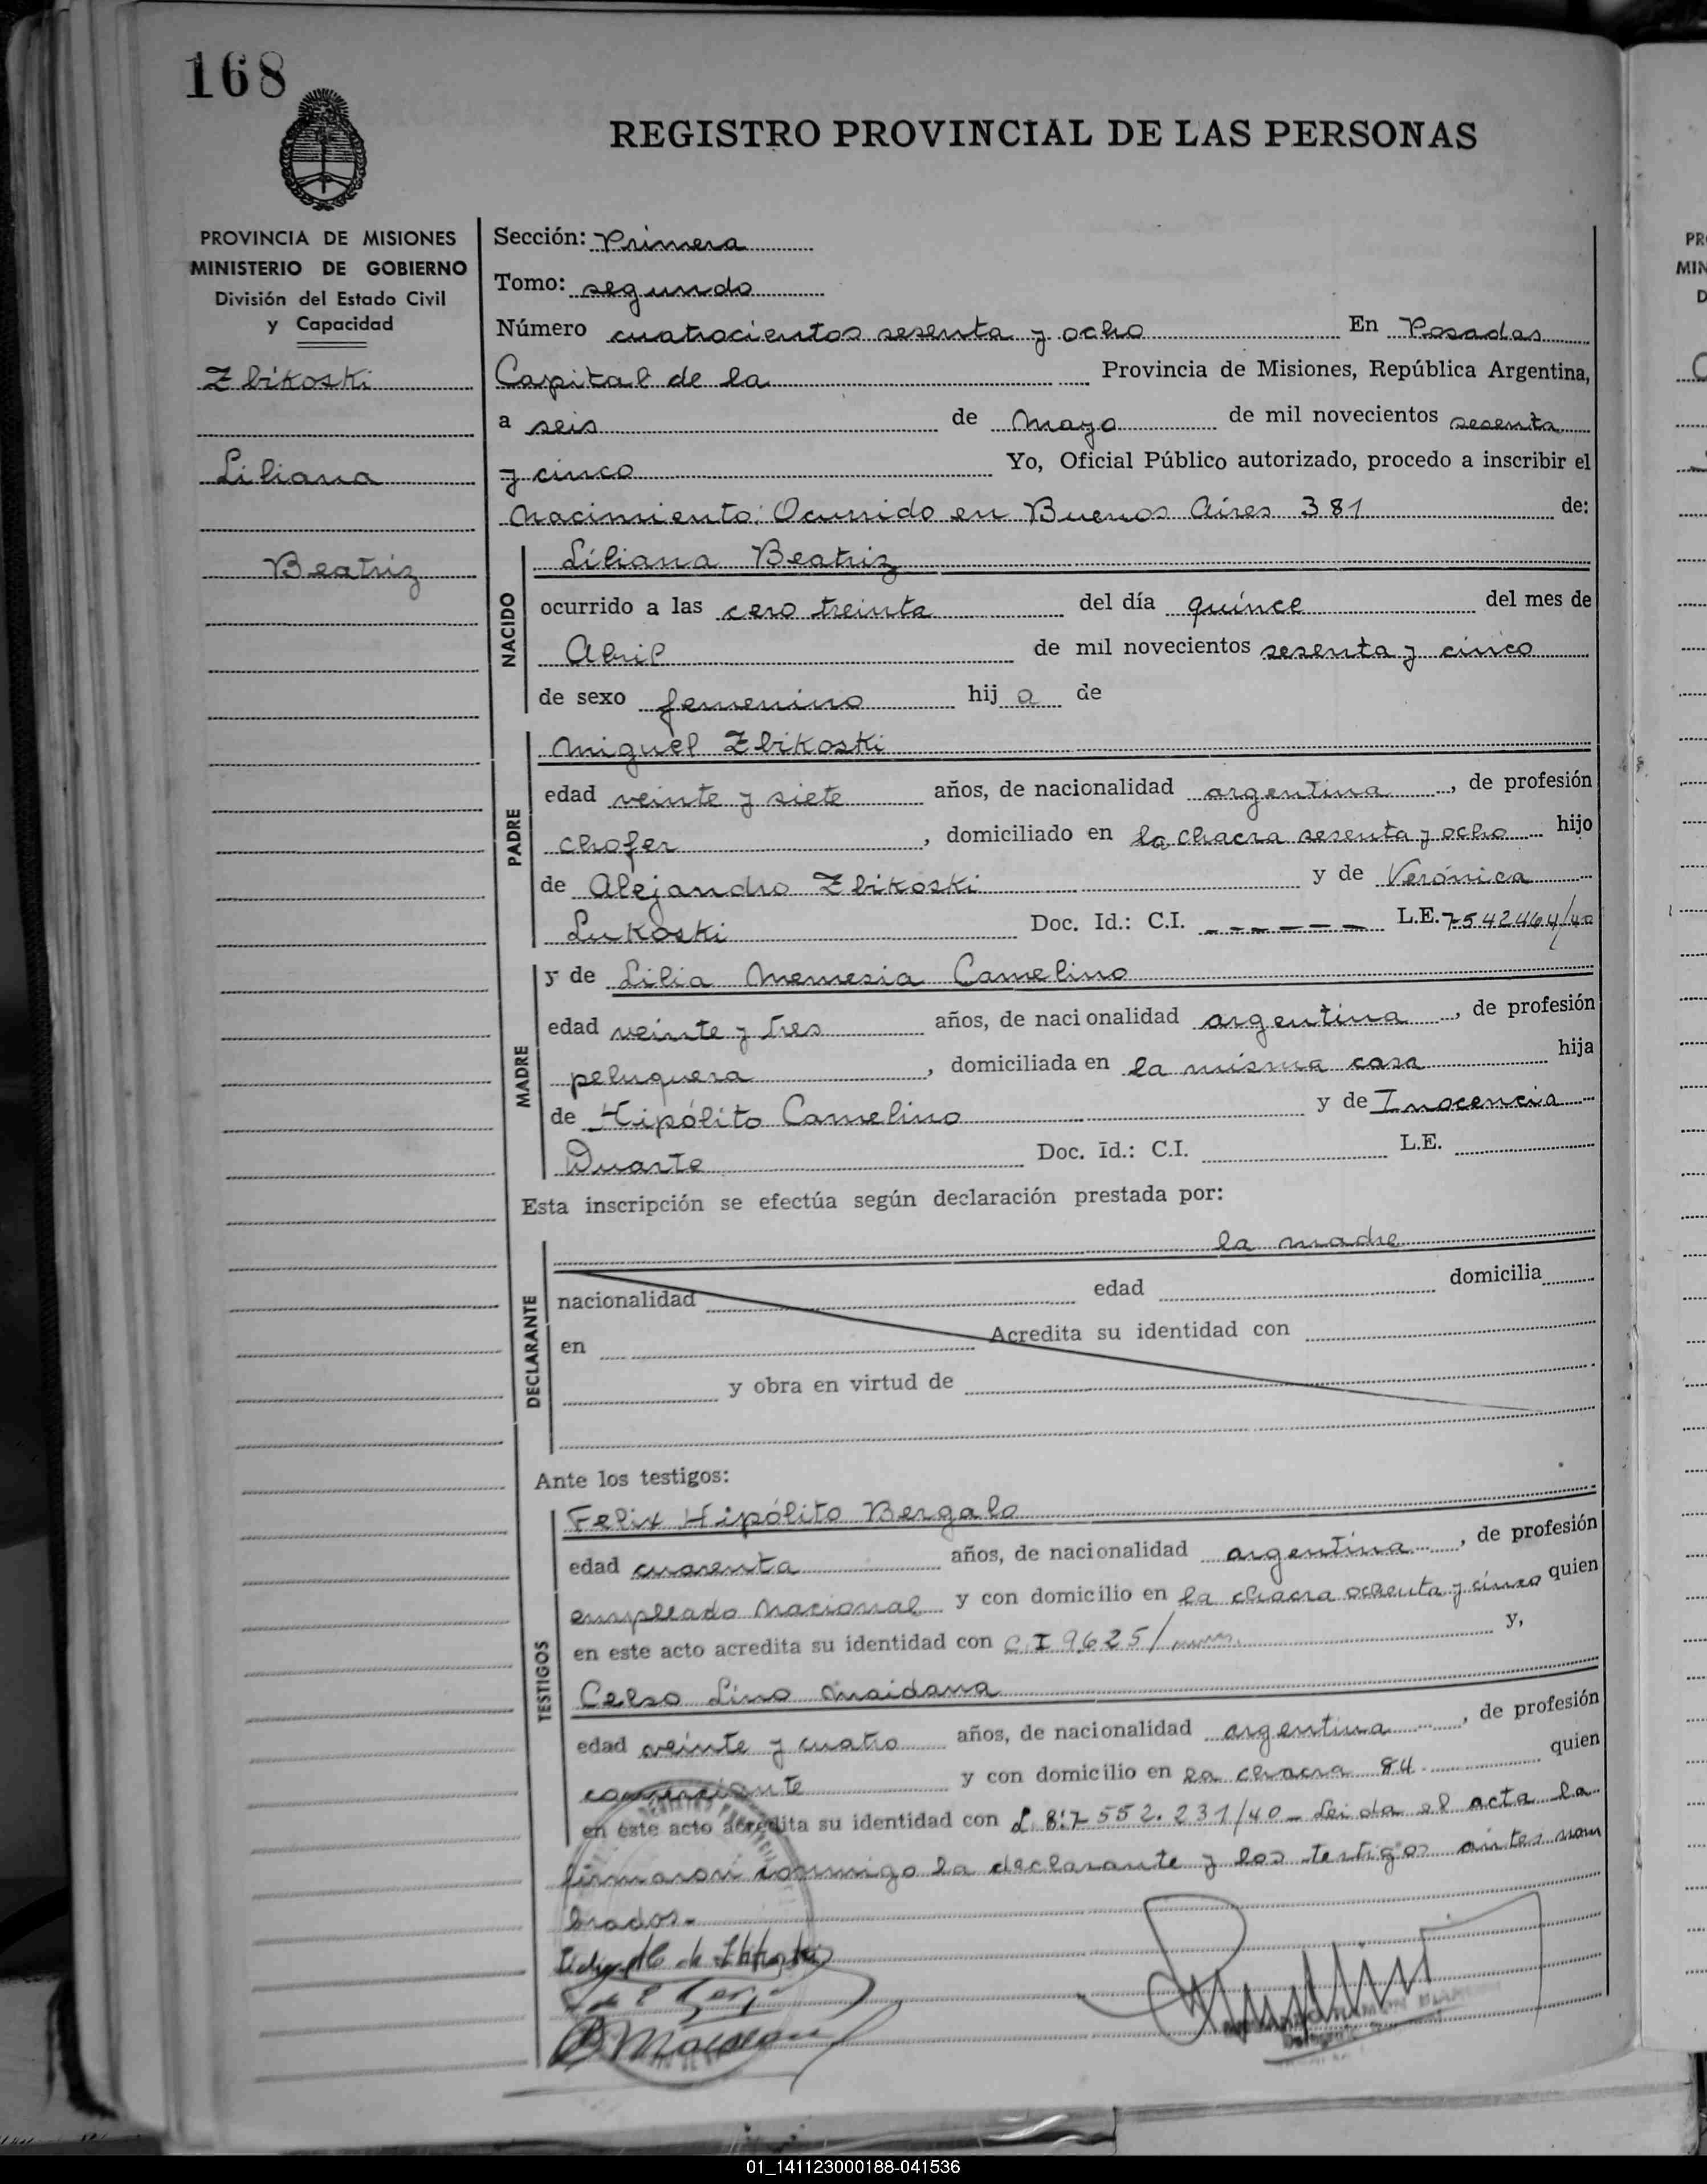 168
REGISTRO PROVINCIAL DE LAS PERSONAS
PROVINCIA DE MISIONES
MINISTERIO DE GOBIERNO
División del Estado Civil
y Capacidad
Zbikoski
Liliana
Beatriz
Sección: Primera
Tomo: segundo
Número cuatrocientos sesenta y ocho En Posadas
Capital de la Provincia de Misiones, República Argentina,
a seis de Mayo de mil novecientos sesenta
y cinco Yo, Oficial Público autorizado, procedo a inscribir el
Nacimiento: Ocurrido en Buenos Aires 381 de:
NACIDO
Liliana Beatriz
ocurrido a las cero treinta del día quince del mes de
Abril de mil novecientos sesenta y cinco
de sexo femenino hij a de
PADRE
Miguel Zbikoski
edad veinte y siete años, de nacionalidad argentina, de profesión
chofer, domiciliado en la chacra sesenta y ocho hijo
de Alejandro Zbikoski y de Verónica
Lukoski Doc. Id.: C.I. ------- L.E. 7542464/40
MADRE
y de Lilia Nemesia Camelino
edad veinte y tres años, de nacionalidad argentina, de profesión
peluquera, domiciliada en la misma casa hija
de Hipólito Camelino y de Inocencia
Duarte Doc. Id.: C.I. L.E.
Esta inscripción se efectúa según declaración prestada por:
DECLARANTE
la madre
nacionalidad edad domicilia
en Acredita su identidad con
y obra en virtud de
Ante los testigos:
TESTIGOS
Felix Hipólito Bergalo
edad cuarenta años, de nacionalidad argentina, de profesión
empleado Nacional y con domicilio en la chacra ochenta y cinco quien
en este acto acredita su identidad con C.I 9625/ y,
Celso Lino Maidana
edad veinte y cuatro años, de nacionalidad argentina, de profesión
comerciante y con domicilio en la chacra 84 quien
en este acto acredita su identidad con 7.552.231/40 - Leida el acta la
firmaron conmigo la declarante y los testigos antes nom
brados.-
01_141123000188-041536